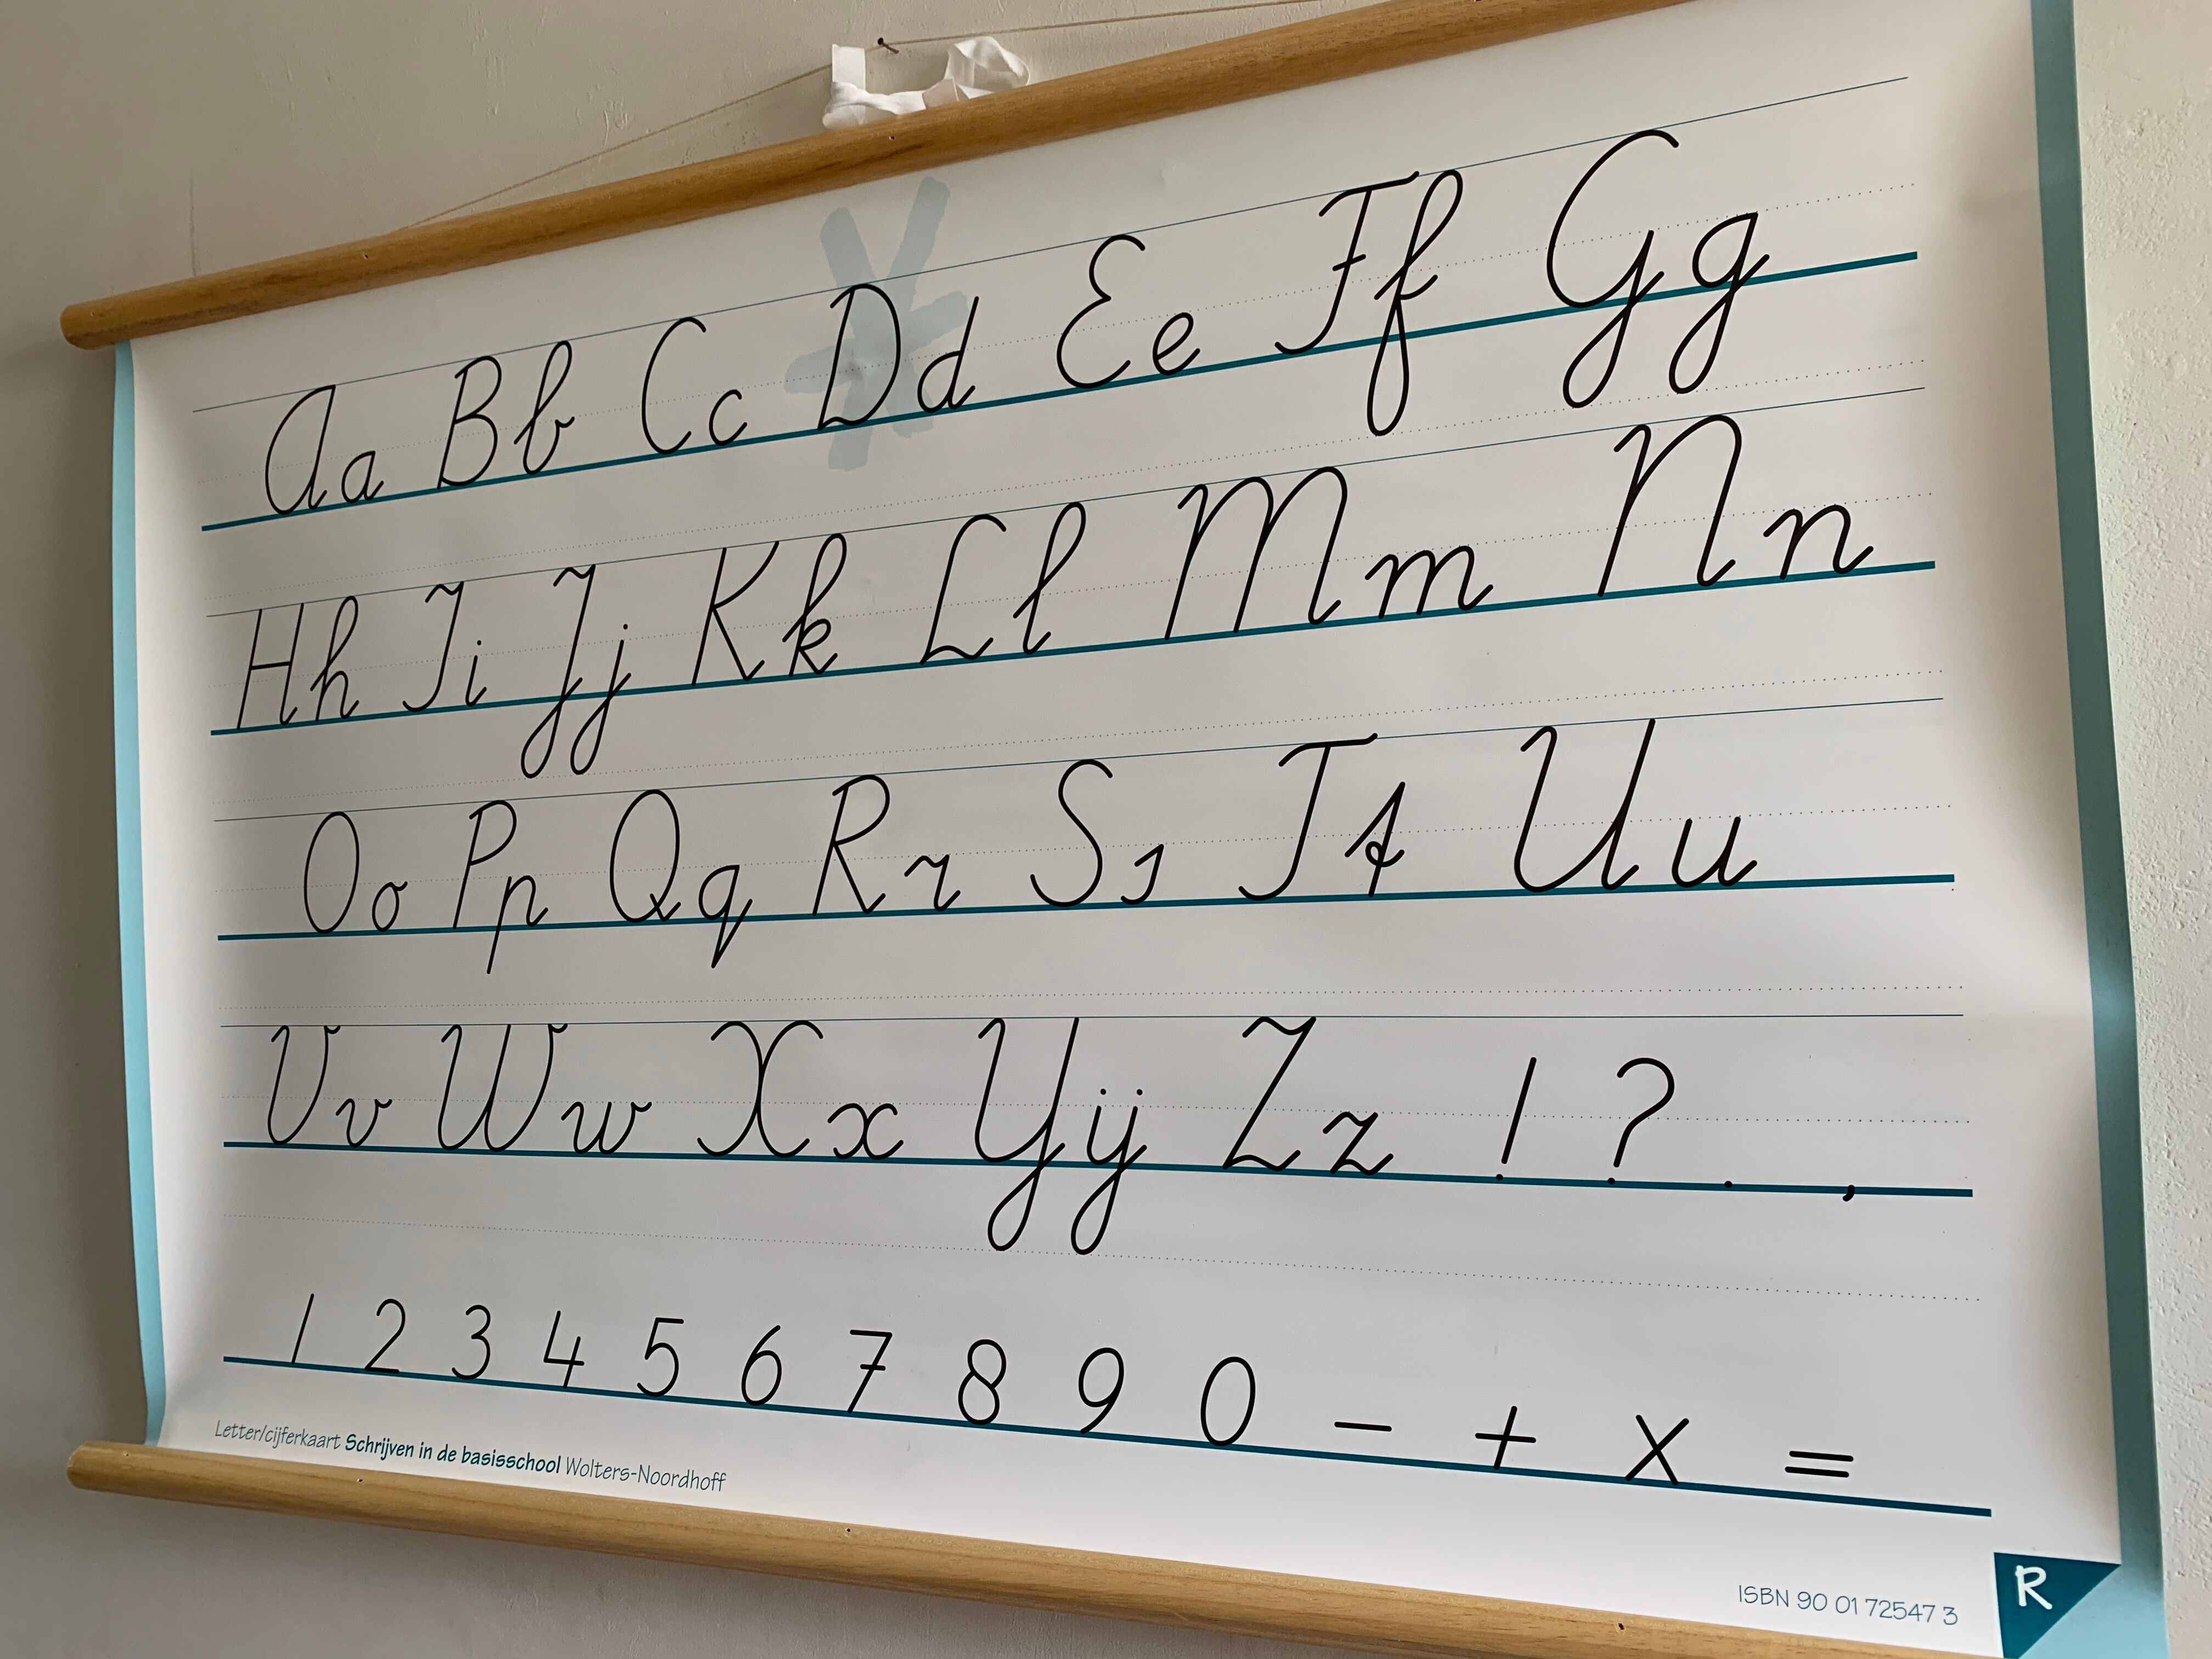 Aa Bb Cc Dd Ee Ff Gg
Hh Ii Jj Kk Ll Mm Nn
Oo Pp Qq Rr Ss Tt Uu
Vv Ww Xx Y ij Zz ! ? . ,
1 2 3 4 5 6 7 8 9 0 − + × =
Letter/cijferkaart Schrijven in de basisschool Wolters-Noordhoff
ISBN 90 01 72547 3
R